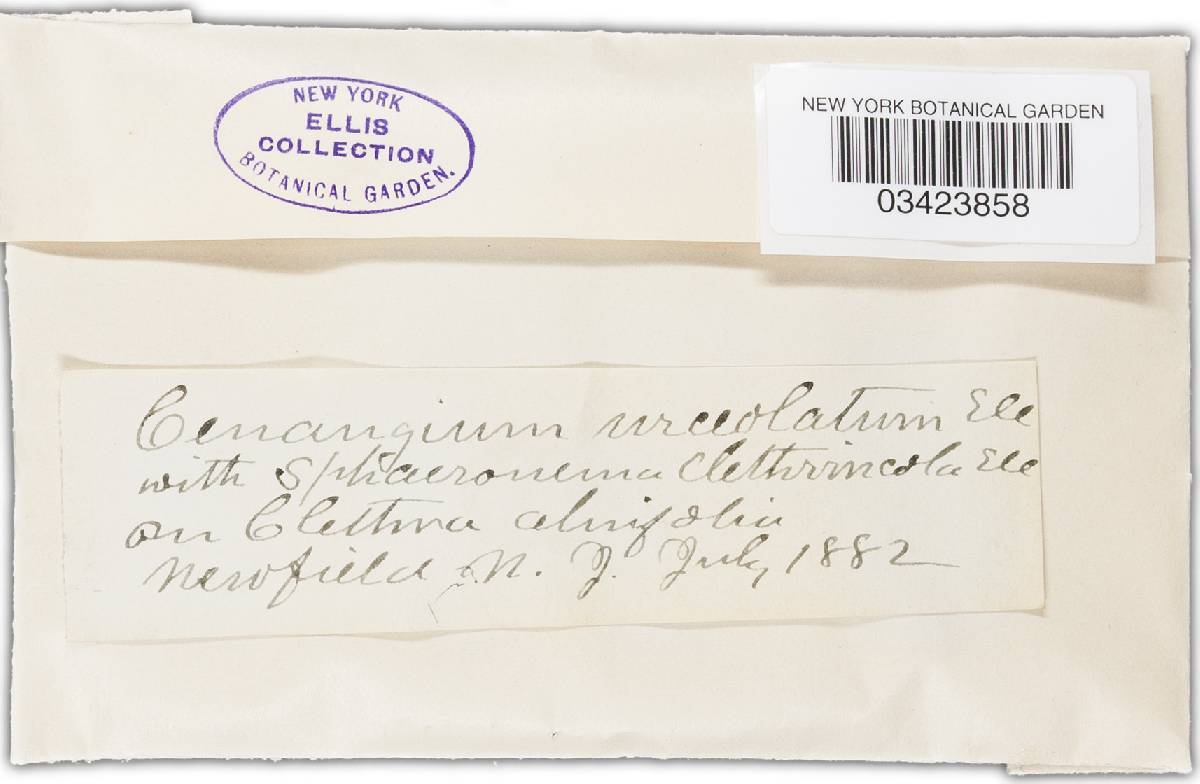 NEW YORK
ELLIS
COLLECTION
BOTANICAL GARDEN.
NEW YORK BOTANICAL GARDEN
03423858
Cenangium urceolatum Ell
with Sphaeronema Clethrincola Ell
on Clethra alnifolia
Newfield N. J. July, 1882